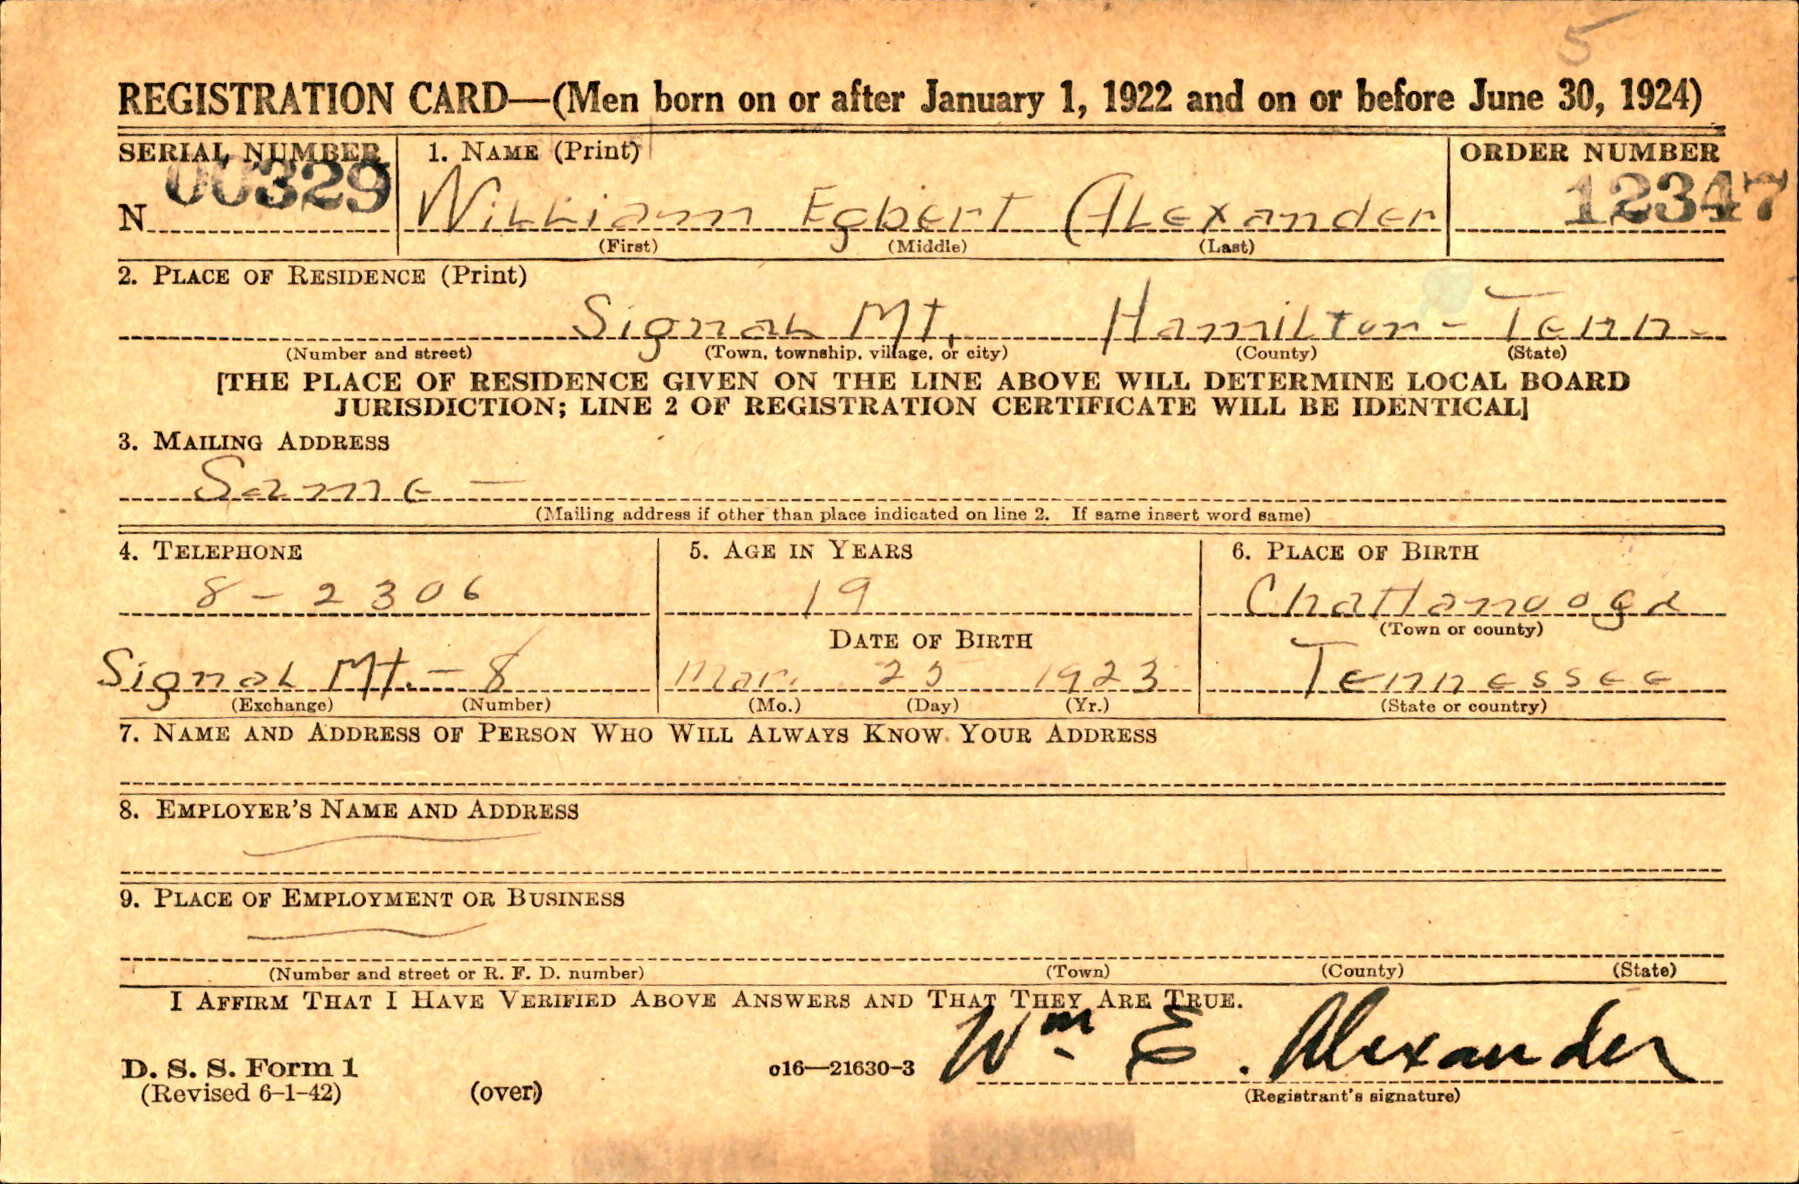 5
REGISTRATION CARD—(Men born on or after January 1, 1922 and on or before June 30, 1924)
SERIAL NUMBER 1. NAME (Print) ORDER NUMBER
N 00329 William Egbert Alexander 12347
(First) (Middle) (Last)
2. PLACE OF RESIDENCE (Print)
Signal Mt. Hamilton - Tenn.
(Number and street) (Town, township, village, or city) (County) (State)
[THE PLACE OF RESIDENCE GIVEN ON THE LINE ABOVE WILL DETERMINE LOCAL BOARD
JURISDICTION; LINE 2 OF REGISTRATION CERTIFICATE WILL BE IDENTICAL]
3. MAILING ADDRESS
Same —
(Mailing address if other than place indicated on line 2. If same insert word same)
4. TELEPHONE 5. AGE IN YEARS 6. PLACE OF BIRTH
8-2306 19 Chattanooga
(Town or county)
DATE OF BIRTH
Signal Mt. - 8 Mar. 25 1923 Tennessee
(Exchange) (Number) (Mo.) (Day) (Yr.) (State or country)
7. NAME AND ADDRESS OF PERSON WHO WILL ALWAYS KNOW YOUR ADDRESS
8. EMPLOYER'S NAME AND ADDRESS
9. PLACE OF EMPLOYMENT OR BUSINESS
(Number and street or R. F. D. number) (Town) (County) (State)
I AFFIRM THAT I HAVE VERIFIED ABOVE ANSWERS AND THAT THEY ARE TRUE.
Wm E. Alexander
D. S. S. Form 1 c16—21630-3
(Revised 6-1-42) (over) (Registrant's signature)